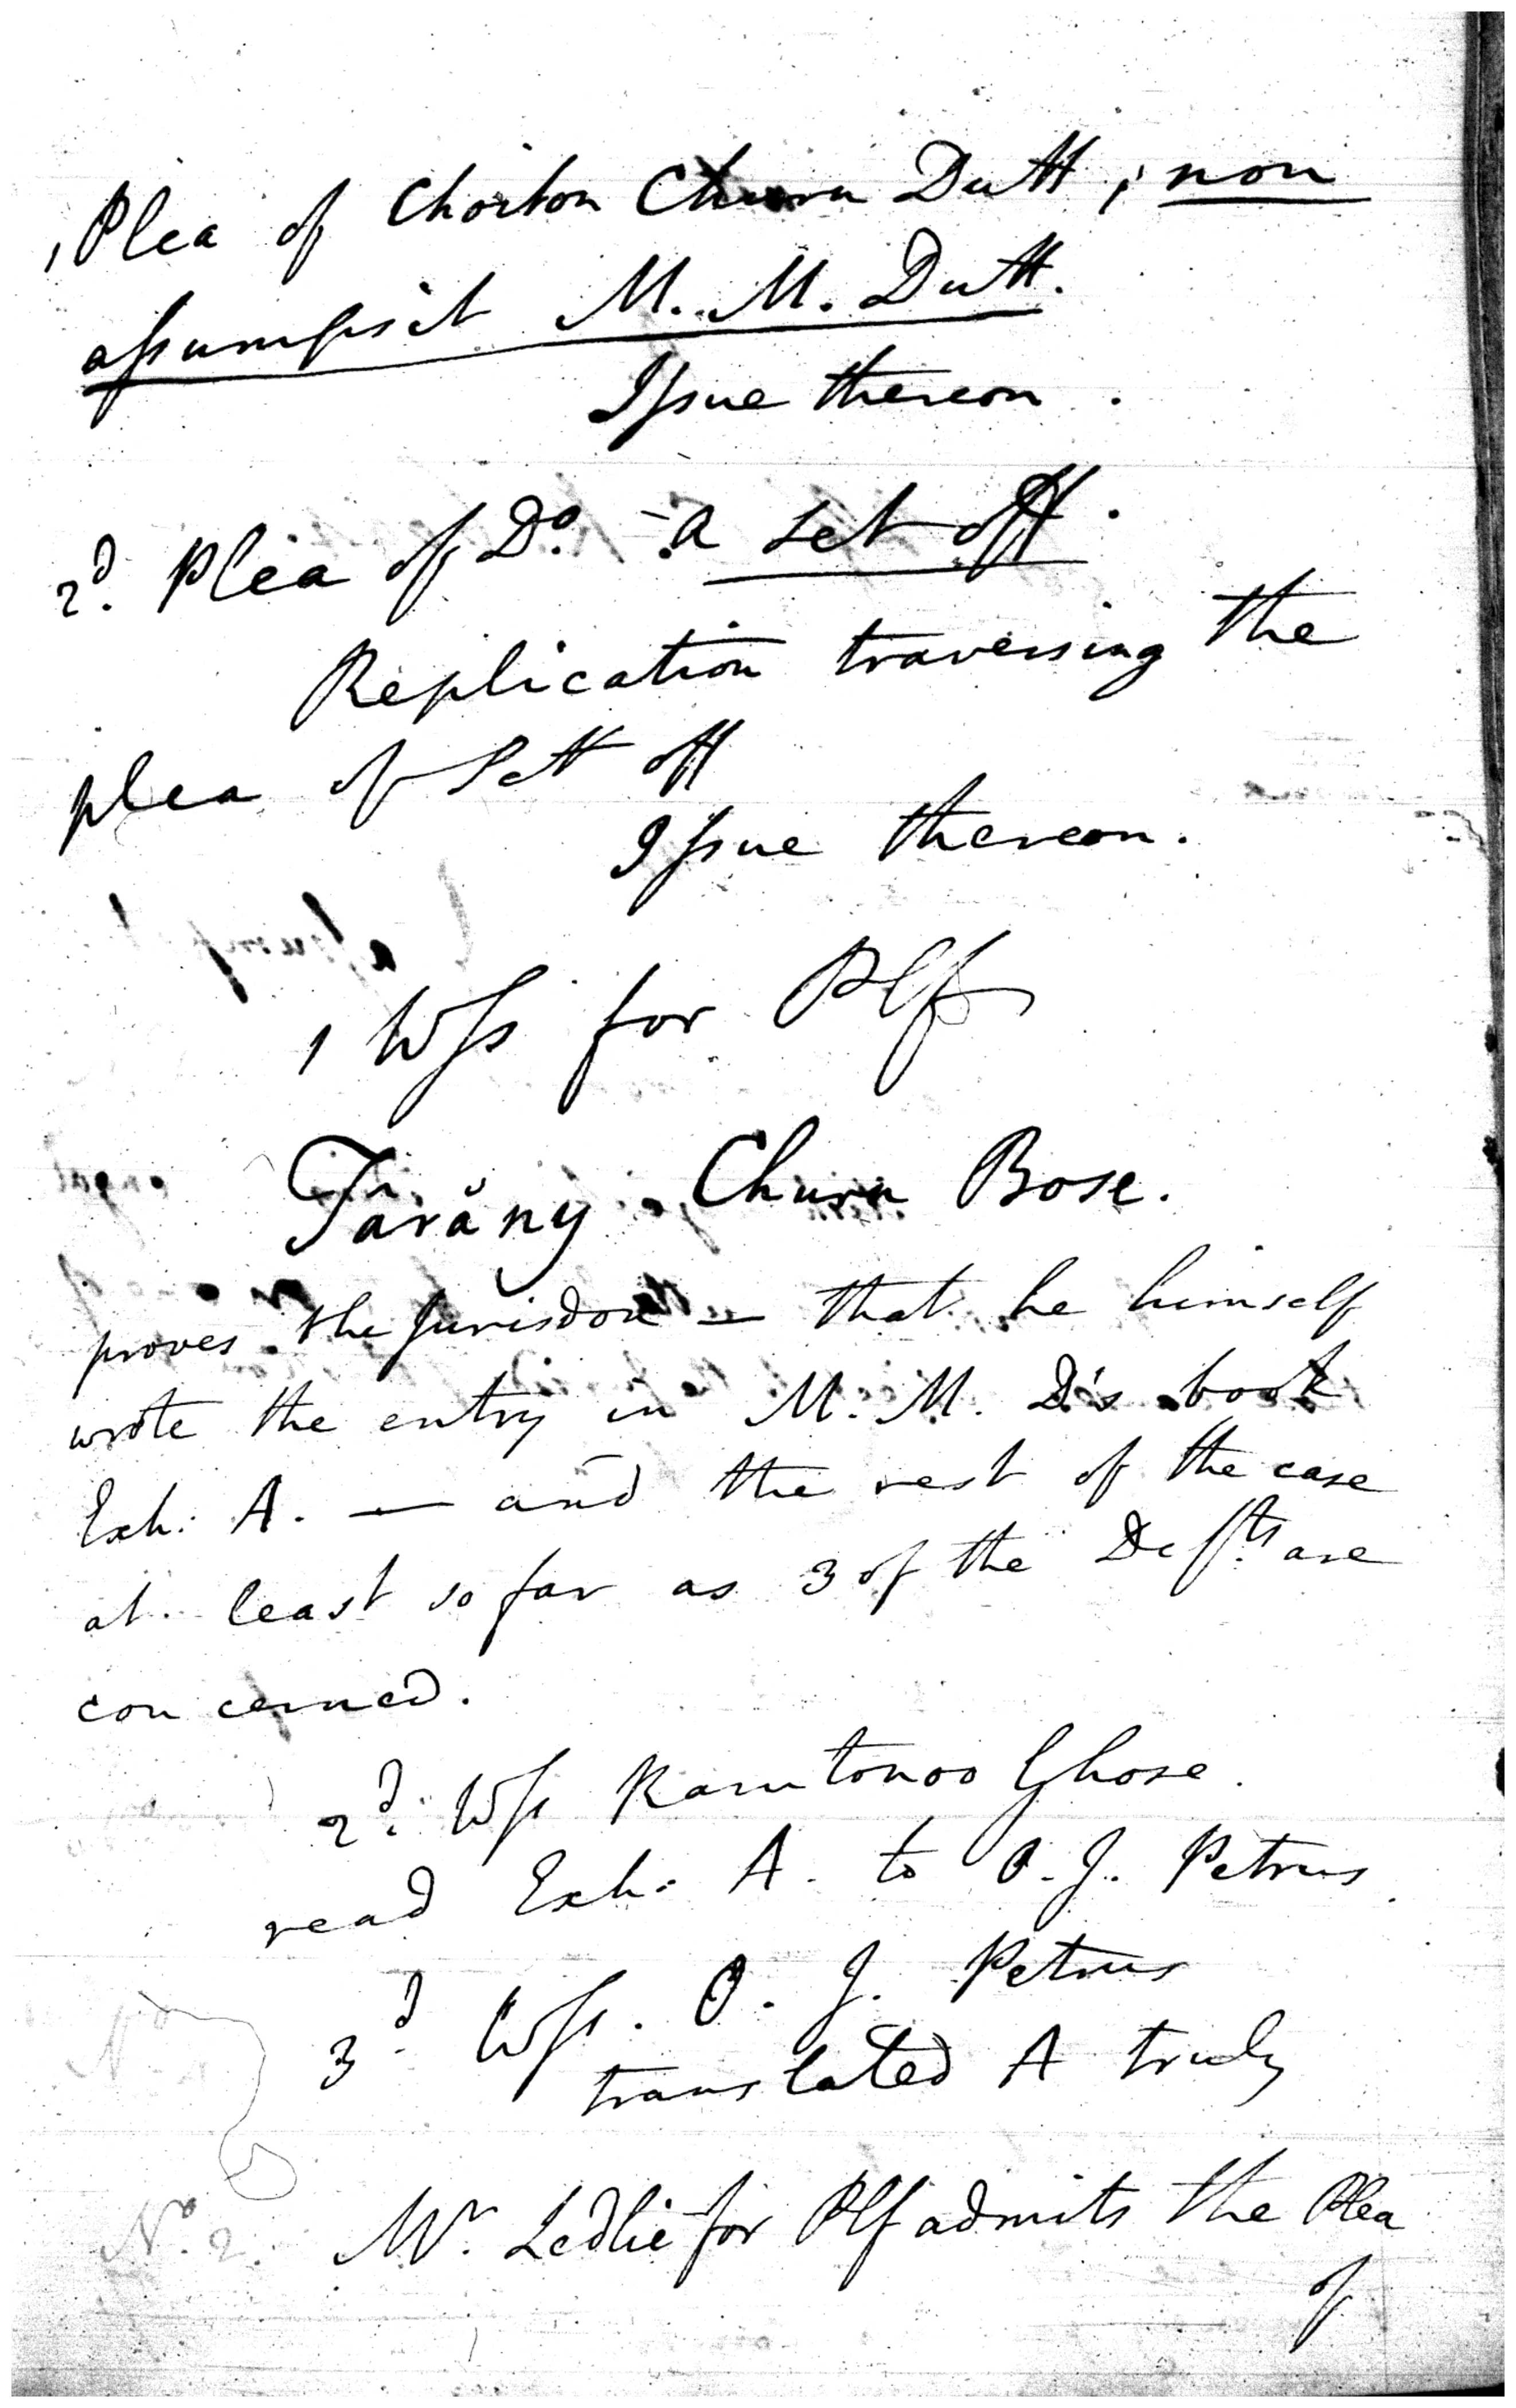 1 Plea of Choiton Churn Dutt; non
assumpsit M. M. Dutt.
Issue thereon.
2d. Plea of Do. - a set off.
Replication traversing the
plea of Sett off
Issue thereon.
1 Wss for Plf
Tārāny Churn Bose.
proves the Jurisdon — that he himself
wrote the entry in M. M. D's book
Exh: A. — and the rest of the case
at least so far as 3 of the Defts are
concerned.
2d. Wss Ramtonoo Ghose.
read Exh: A. to O. J. Petrus
3d. Wss. O. J. Petrus
translated A truly
No. 2. Mr. Ledlie for Plf admits the Plea
of